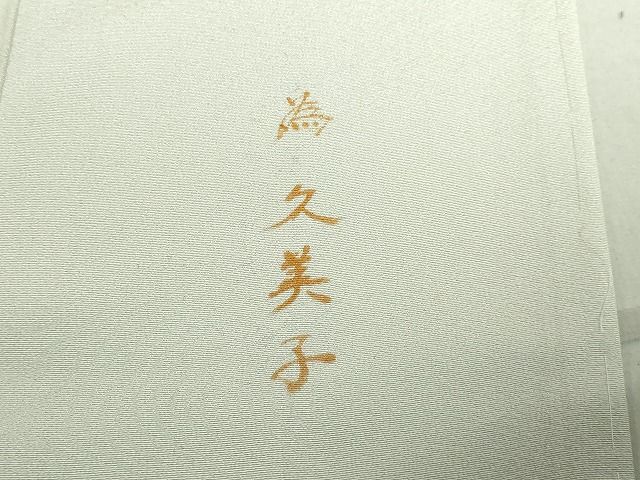 為 久美子